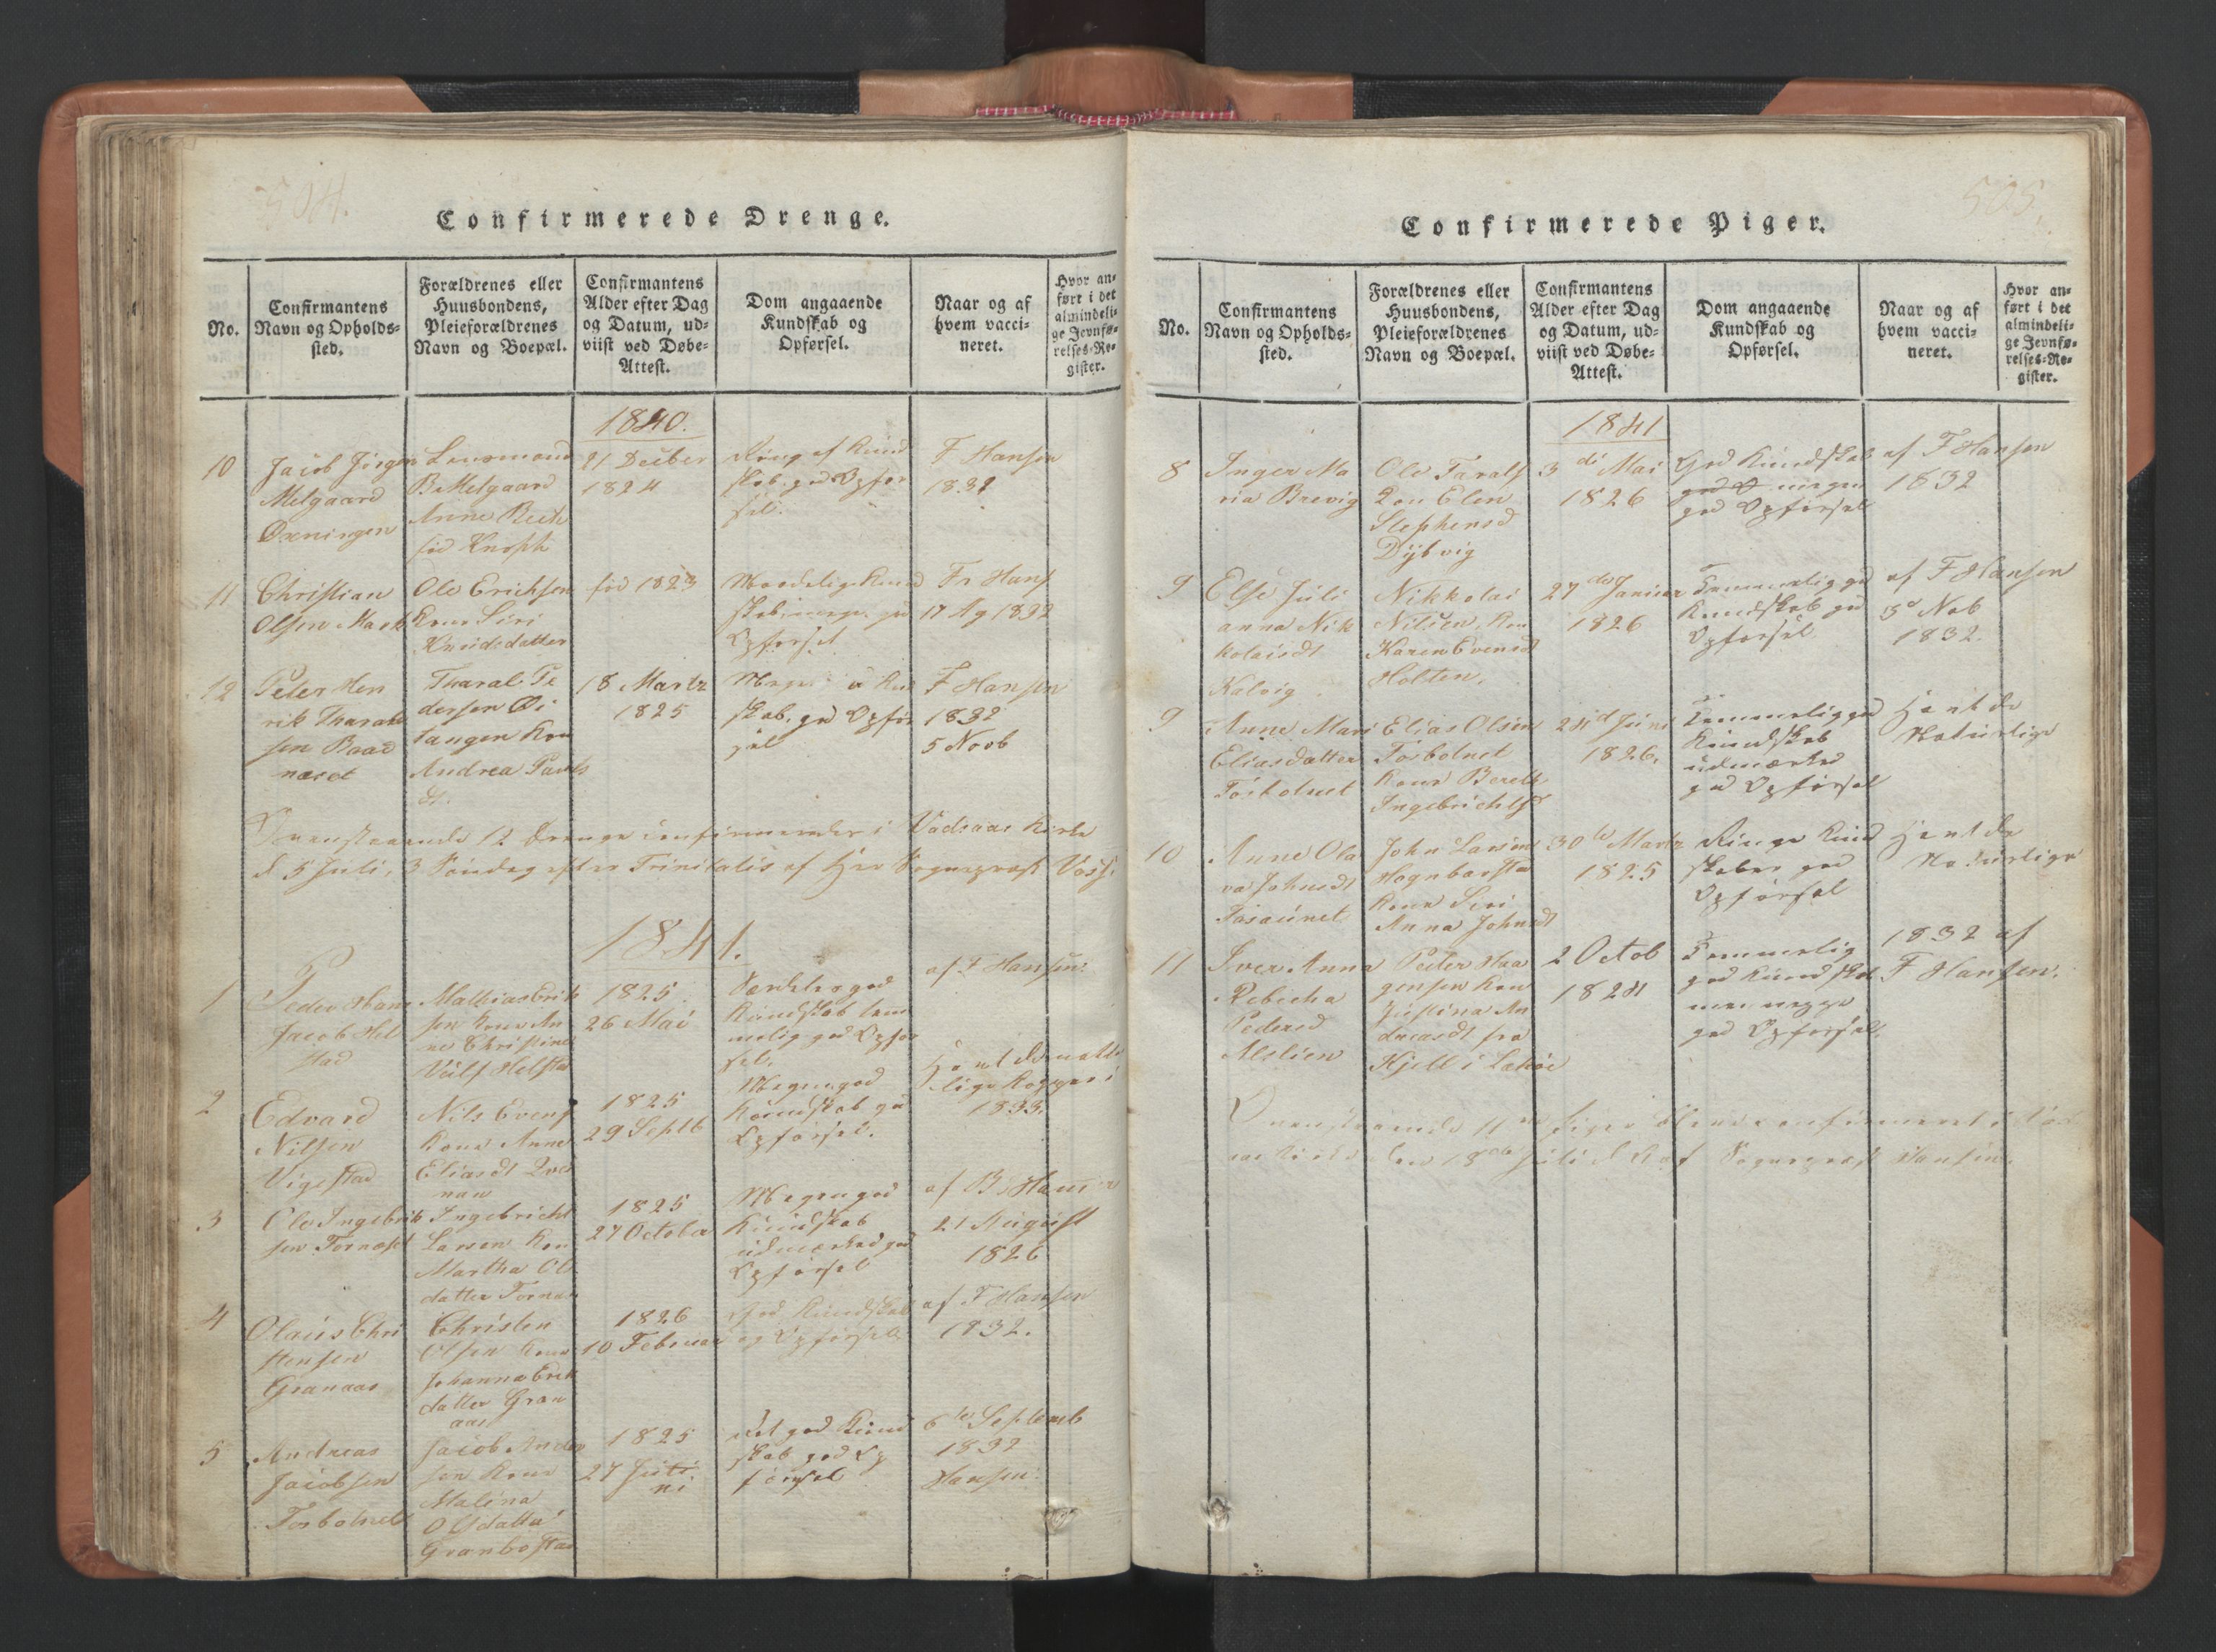 504.
Confirmerede Drenge.
No.
Confirmantens
Navn og Opholds-
sted.
Forældrenes eller
Huusbondens,
Pleieforældrenes
Navn og Boepæl.
Confirmantens
Alder efter Dag
og Datum, ud-
viist ved Døbe-
Attest.
Dom angaaende
Kundskab og
Opførsel.
Naar og af
hvem vacci-
neret.
Hvor an-
ført i det
almindeli-
ge Jevnfø-
relses-Re-
gister.
1840.
10
Jacob Jørgen
Melgaard
Øxningen
Lensmand
B Melgaard
Anne Beck
fød Knoph
21 Decber
1824
Ring af Kund
skab, god Opfør
sel.
F Hansen
1832
11
Christian
Olsen Mark
Ole Erichsen
Kone Siri
Knudsdatter
fød 1823
Maadelig Kund
skab, megen god
Opførsel
Fr Hans
17 Ag 1832
12
Peter Hen
rik Tharald
sen Baad
næset
Tharal Pe
dersen Øi
tangen Kon
Andrea Pauls
dt.
18 Martz
1825
Megen Kund
skab, god Opfør
sel
F Hansen
1832
5 Novb
Ovenstaaende 12 Drenge confirmerede i Vadsaas Kirke
d 5 Juli, 3 Søndag efter Trinitatis af Hr Sognepræst Voss.
1841.
1
Peder Hans
Jacob Hel
stad
Mathias Erik
sen Kone An
ne Christine
Ulf Helstad
1825
26 Mai
Særdeles god
Kundskab tem
melig god Opfør
sel.
af F Hansen
2
Edvard
Nilsen
Vigestad
Nils Evens
Kone Anne
Eliasdt
1825
29 Septb
Megen god
Kundskab god
Opførsel.
Havt de natur
lige Kopper i
1833.
3
Ole Ingebrik
sen Tornæset
Ingebricht
Larsen Kon
Martha Ols
datter Tornæs
1825
27 October
Megen god
Kundskab
udmærked god
Opførsel
af B. Hansen
21 August
1826
4
Olaus Chri
stensen
Granaas
Christen
Olsen Kone
Johanna Erik
datter Gran
aas
1826
10 Februar
God Kundskab
og Opførsel
af F Hansen
1832.
5
Andreas
Jacobsen
Tosbotnet
Jacob Ander
sen Kone
Malena
Olsdatter
Granbostad
1825
27 Juli
ni
Ret god Kund
skab god Op
førsel
6te Septemb
1832
Hansen
505.
Confirmerede Piger.
No.
Confirmantens
Navn og Opholds-
sted.
Forældrenes eller
Huusbondens,
Pleieforældrenes
Navn og Boepæl.
Confirmantens
Alder efter Dag
og Datum, ud-
viist ved Døbe-
Attest.
Dom angaaende
Kundskab og
Opførsel.
Naar og af
hvem vacci-
neret.
Hvor an-
ført i det
almindeli-
ge Jevnfø-
relses-Re-
gister.
1841
8
Inger Ma
ria Brevig
Ole Taralds
Kon Elen
Stephensd
Dybvig
3 di Mai
1826
God Kundskab
god O megen
god Opførsel
af F Hansen
1832
9
Else Juli
anna Nik
kolaisdt
Kalvig
Nikkolai
Nilsen, Kon
Karen Evensd
Holten.
27 de Januar
1826
Temmelig god
Kundskab god
Opførsel
af F Hansen
5d Nob
1832.
9
Anne Mari
Eliasdatter
Tosbotnet
Elias Olsen
Tosbotnet
Kone Bereth
Ingebrichtsd
24d Juni
1826.
Temmelig god
Kundskab
udmærket
god Opførsel
Havt de
Naturlige
10
Anne Ola
va Johnsdt
Tosaunet
John Larsen
Hognbarstad
Kone Siri
Anna Johnsdt
30te Martz
1825
Ringe Kund
skaber god
Opførsel
Havt de
Naturlige
11
Iver Anna
Rebecka
Pedersd
Alslien
Peder Haa
gensen Kon
Justina An
dreasdt fra
Kjell i Lekøe
2 Octob
1824
Temmelig
god Kundskab
men megen
god Opførsel.
1832 af
F Hansen.
Ovenstaaende 11 Piger bleve confirmeret i Vad
saas Kirke den 18de Juli af Sognepræst Hansen.